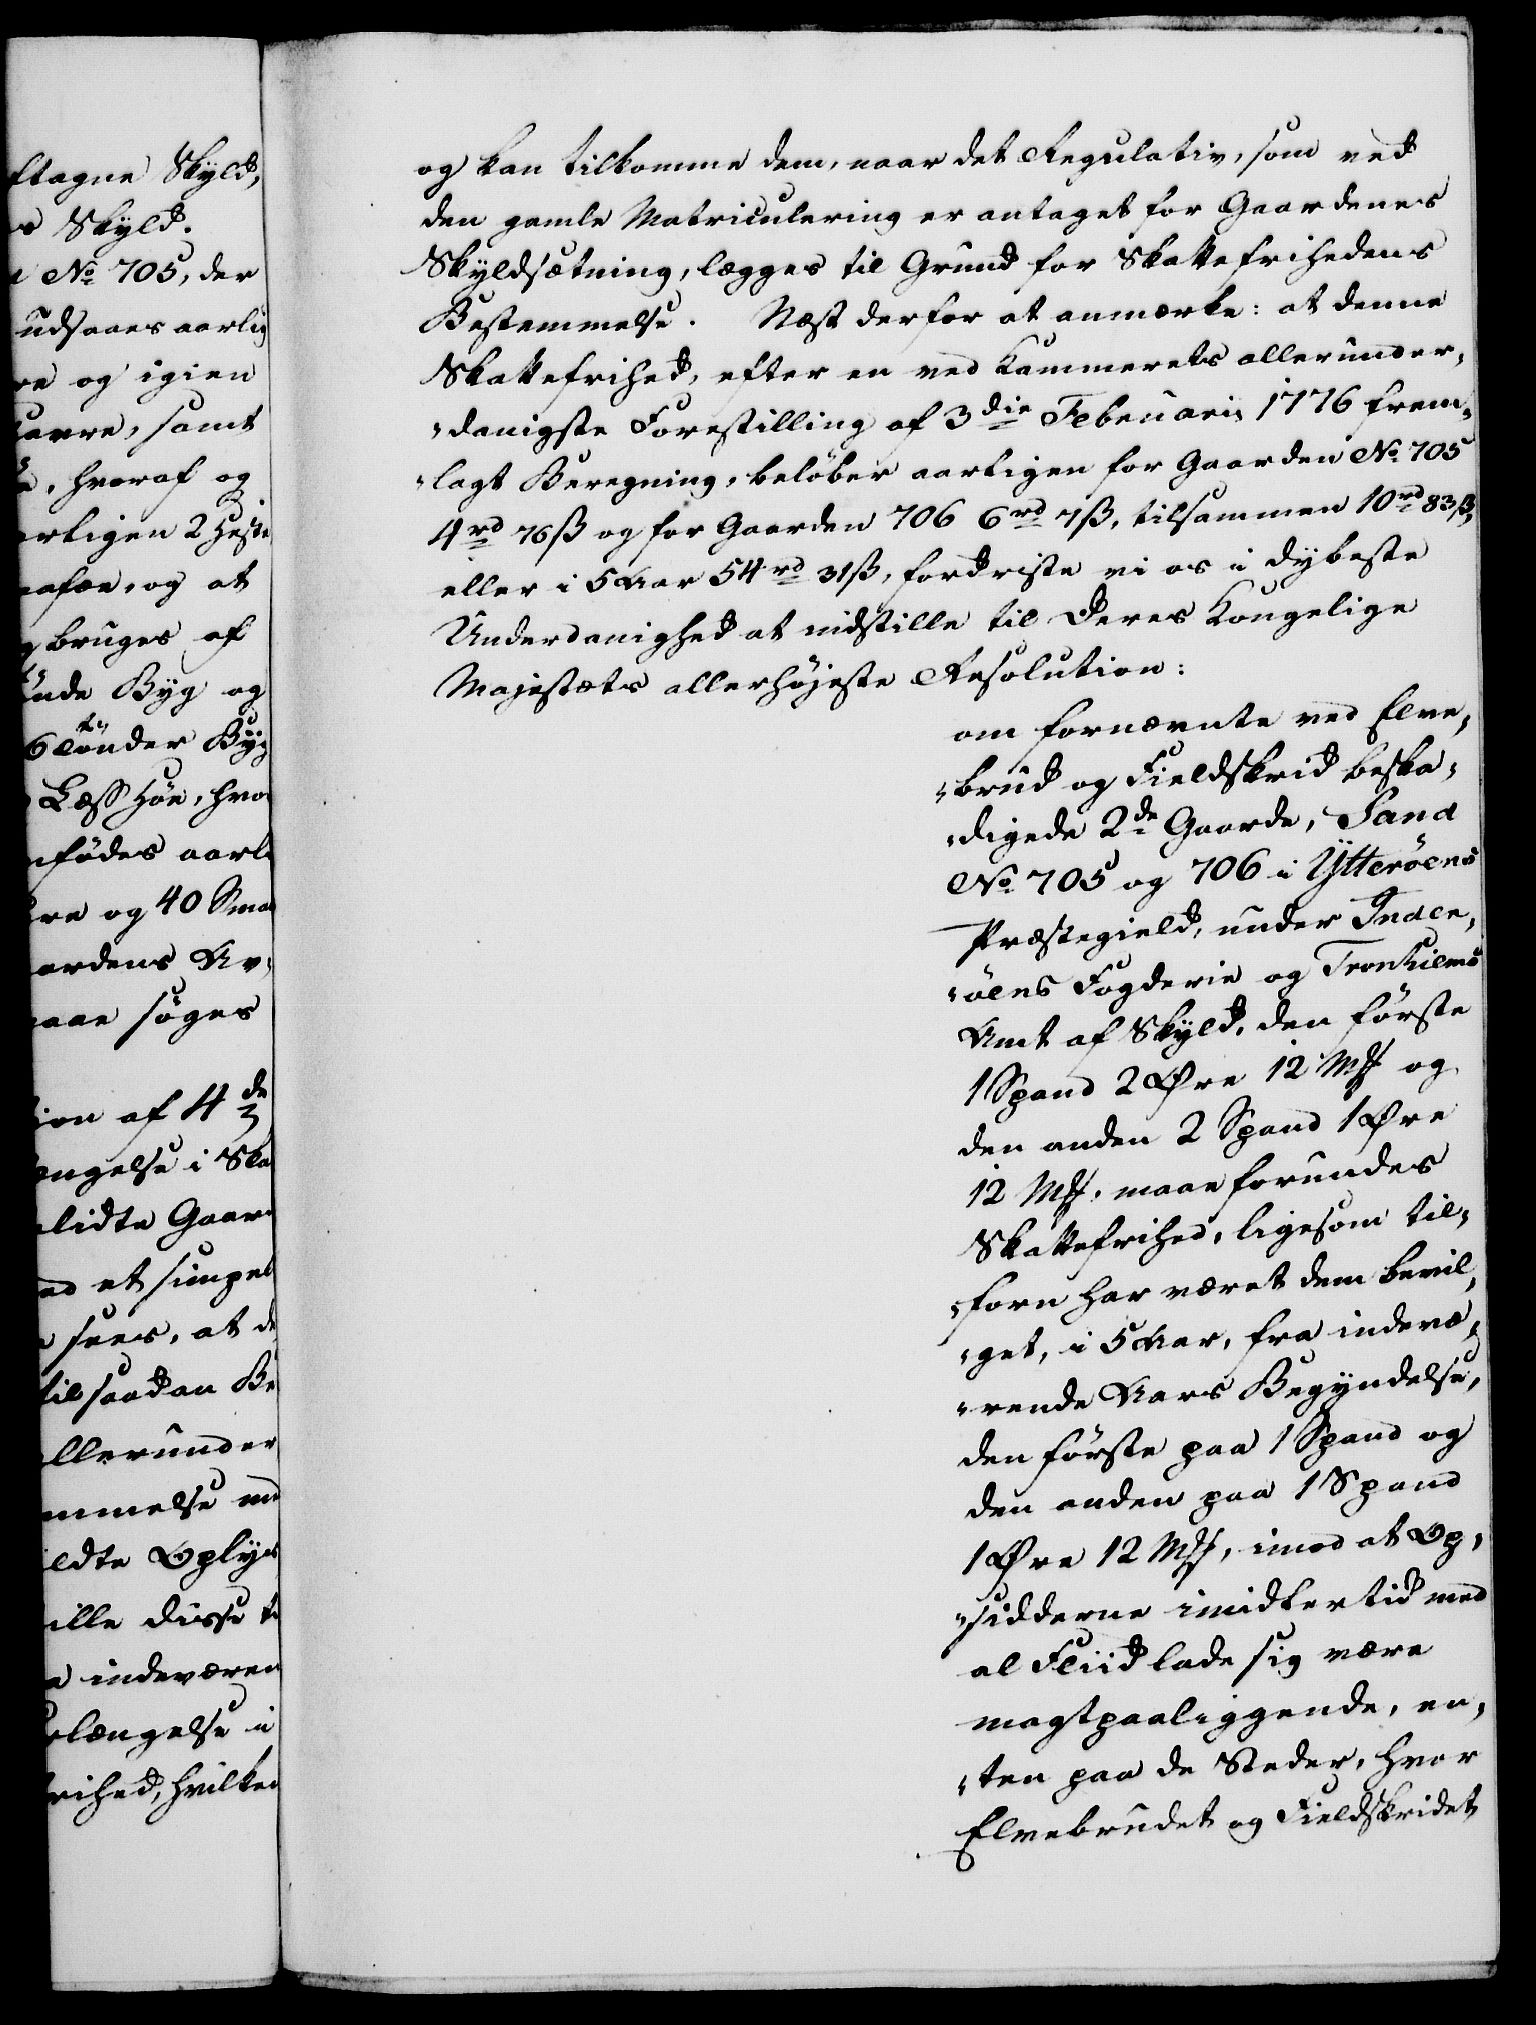 ftagne Skyld,
s Skyld.
No 705, der
udsaaes aarlig
re og igien
havre, samt
, hvoraf og
arligen 2 Heste
og at
bruges af
ønde Byg og
6 tønder Byg
Læs Høe, hvo
fødes aarl
re og 40 Sma
aardens Av¬
maae søges
ion af 4de
ængelse i Ska
lidte Gaar
ed et simpel
sees, at de
til saadan Be
llerunder
mmelse
ldte Oplys
ille disse
indeværen
rlængelse i
rihed, hvilken
og kan tilkomme dem, naar det Regulativ, som ved
den gamle Matriculering er antaget for Gaardenes
Skyldsætning, lægges til Grund for Skattefrihedens
Bestemmelse. Næst derfor at anmærke: at denne
Skattefrihed, efter en ved Kammerets allerunder¬
„danigste Forestilling af 3die Februarii 1776 frem¬
„lagt Beregning, beløber aarligen for Gaarden No 705
4rd 76ß og for Gaarden 706 6rd 7ß, tilsammen 10rd 83ß,
eller i 5 Aar 54rd 31ß, fordriste vi os i dybeste
Underdanighed at indstille til Deres Kongelige
Majestæts allerhøjeste Resolution:
om fornævnte ved Elve¬
„brud og Fieldskrid beska¬
„digede 2de Gaarde, Sand
No 705 og 706 i Ytterøens
Præstegield, under Inder¬
„øens Fogderie og Tronhiems
Amt af Skyld, den første
1 Spand 2 Øre 12 Mk og
den anden 2 Spand 1 Øre
12 Mk, maae forundes
Skattefrihed, ligesom til¬
„forn har været dem bevil¬
„get, i 5 Aar, fra indevæ¬
„rende Aars Begyndelse,
den første paa 1 Spand og
den anden paa 1 Spand
1 Øre 12 Mk, imod at Op¬
„sidderne imidlertid med
al Fliid lade sig være
magtpaaliggende, en¬
„ten paa de Steder, hvor
Elvebrudet og Fieldskridet